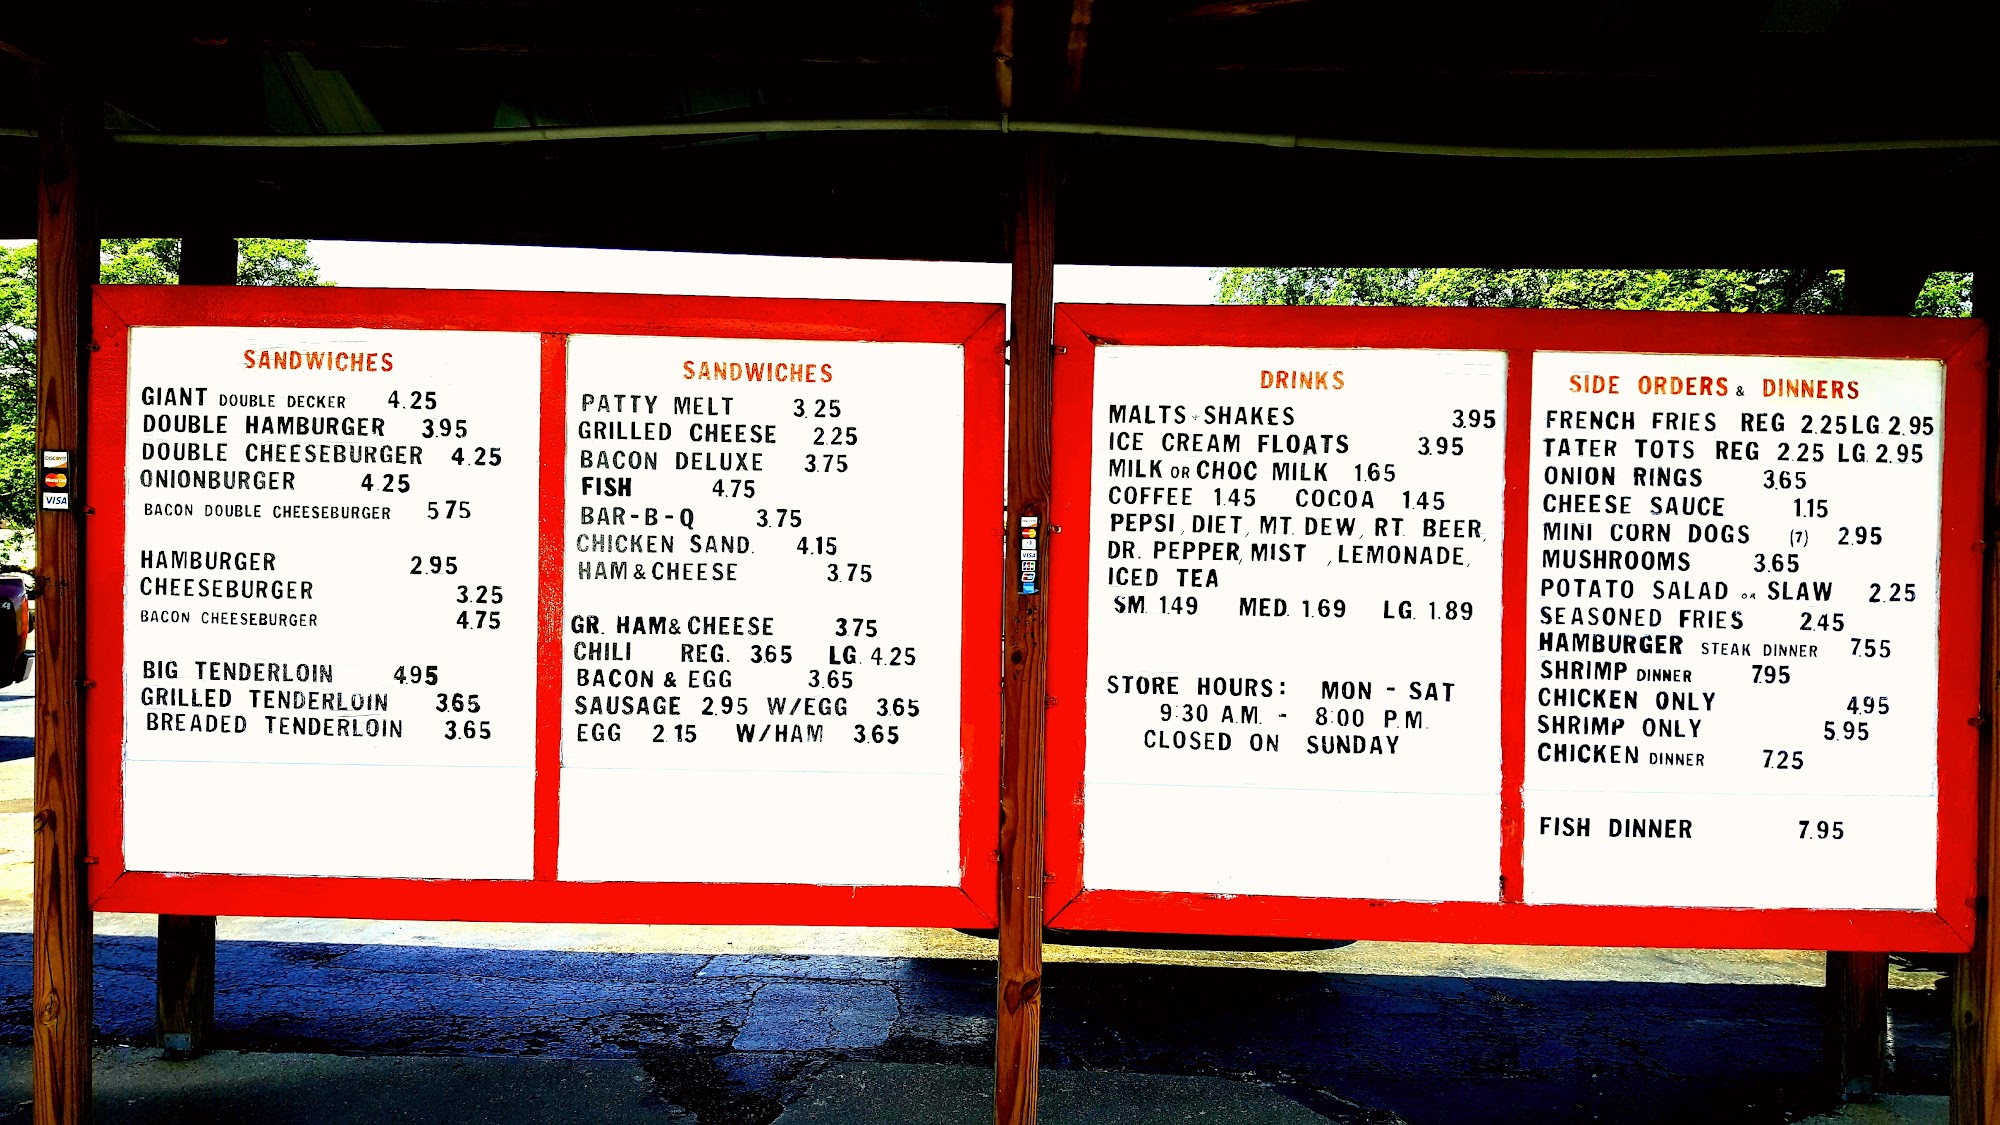 SANDWICHES
GIANT DOUBLE DECKER 4.25
DOUBLE HAMBURGER 3.95
DOUBLE CHEESEBURGER 4.25
ONIONBURGER 4.25
BACON DOUBLE CHEESEBURGER 5.75
HAMBURGER 2.95
CHEESEBURGER 3.25
BACON CHEESEBURGER 4.75
BIG TENDERLOIN 4.95
GRILLED TENDERLOIN 3.65
BREADED TENDERLOIN 3.65
SANDWICHES
PATTY MELT 3.25
GRILLED CHEESE 2.25
BACON DELUXE 3.75
FISH 4.75
BAR-B-Q 3.75
CHICKEN SAND. 4.15
HAM & CHEESE 3.75
GR. HAM & CHEESE 3.75
CHILI REG. 3.65 LG. 4.25
BACON & EGG 3.65
SAUSAGE 2.95 W/EGG 3.65
EGG 2.15 W/HAM 3.65
DRINKS
MALTS + SHAKES 3.95
ICE CREAM FLOATS 3.95
MILK OR CHOC MILK 1.65
COFFEE 1.45 COCOA 1.45
PEPSI, DIET, MT. DEW, RT. BEER,
DR. PEPPER, MIST , LEMONADE,
ICED TEA
SM. 1.49 MED. 1.69 LG. 1.89
STORE HOURS: MON - SAT
9:30 A.M. - 8:00 P.M.
CLOSED ON SUNDAY
SIDE ORDERS & DINNERS
FRENCH FRIES REG 2.25 LG. 2.95
TATER TOTS REG 2.25 LG. 2.95
ONION RINGS 3.65
CHEESE SAUCE 1.15
MINI CORN DOGS (7) 2.95
MUSHROOMS 3.65
POTATO SALAD OR SLAW 2.25
SEASONED FRIES 2.45
HAMBURGER STEAK DINNER 7.55
SHRIMP DINNER 7.95
CHICKEN ONLY 4.95
SHRIMP ONLY 5.95
CHICKEN DINNER 7.25
FISH DINNER 7.95
DISCOVER
MasterCard
VISA
VISA